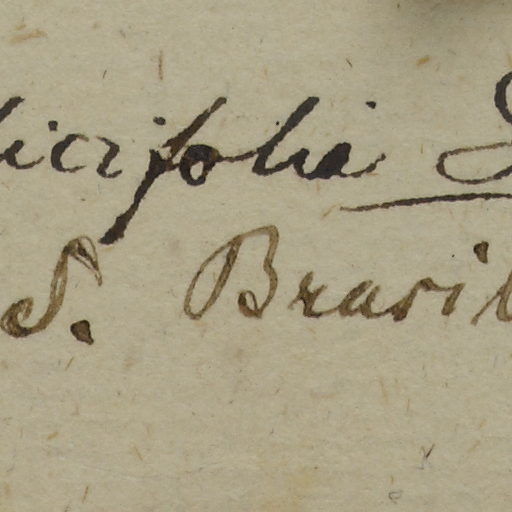 licifolia
S. Brasil